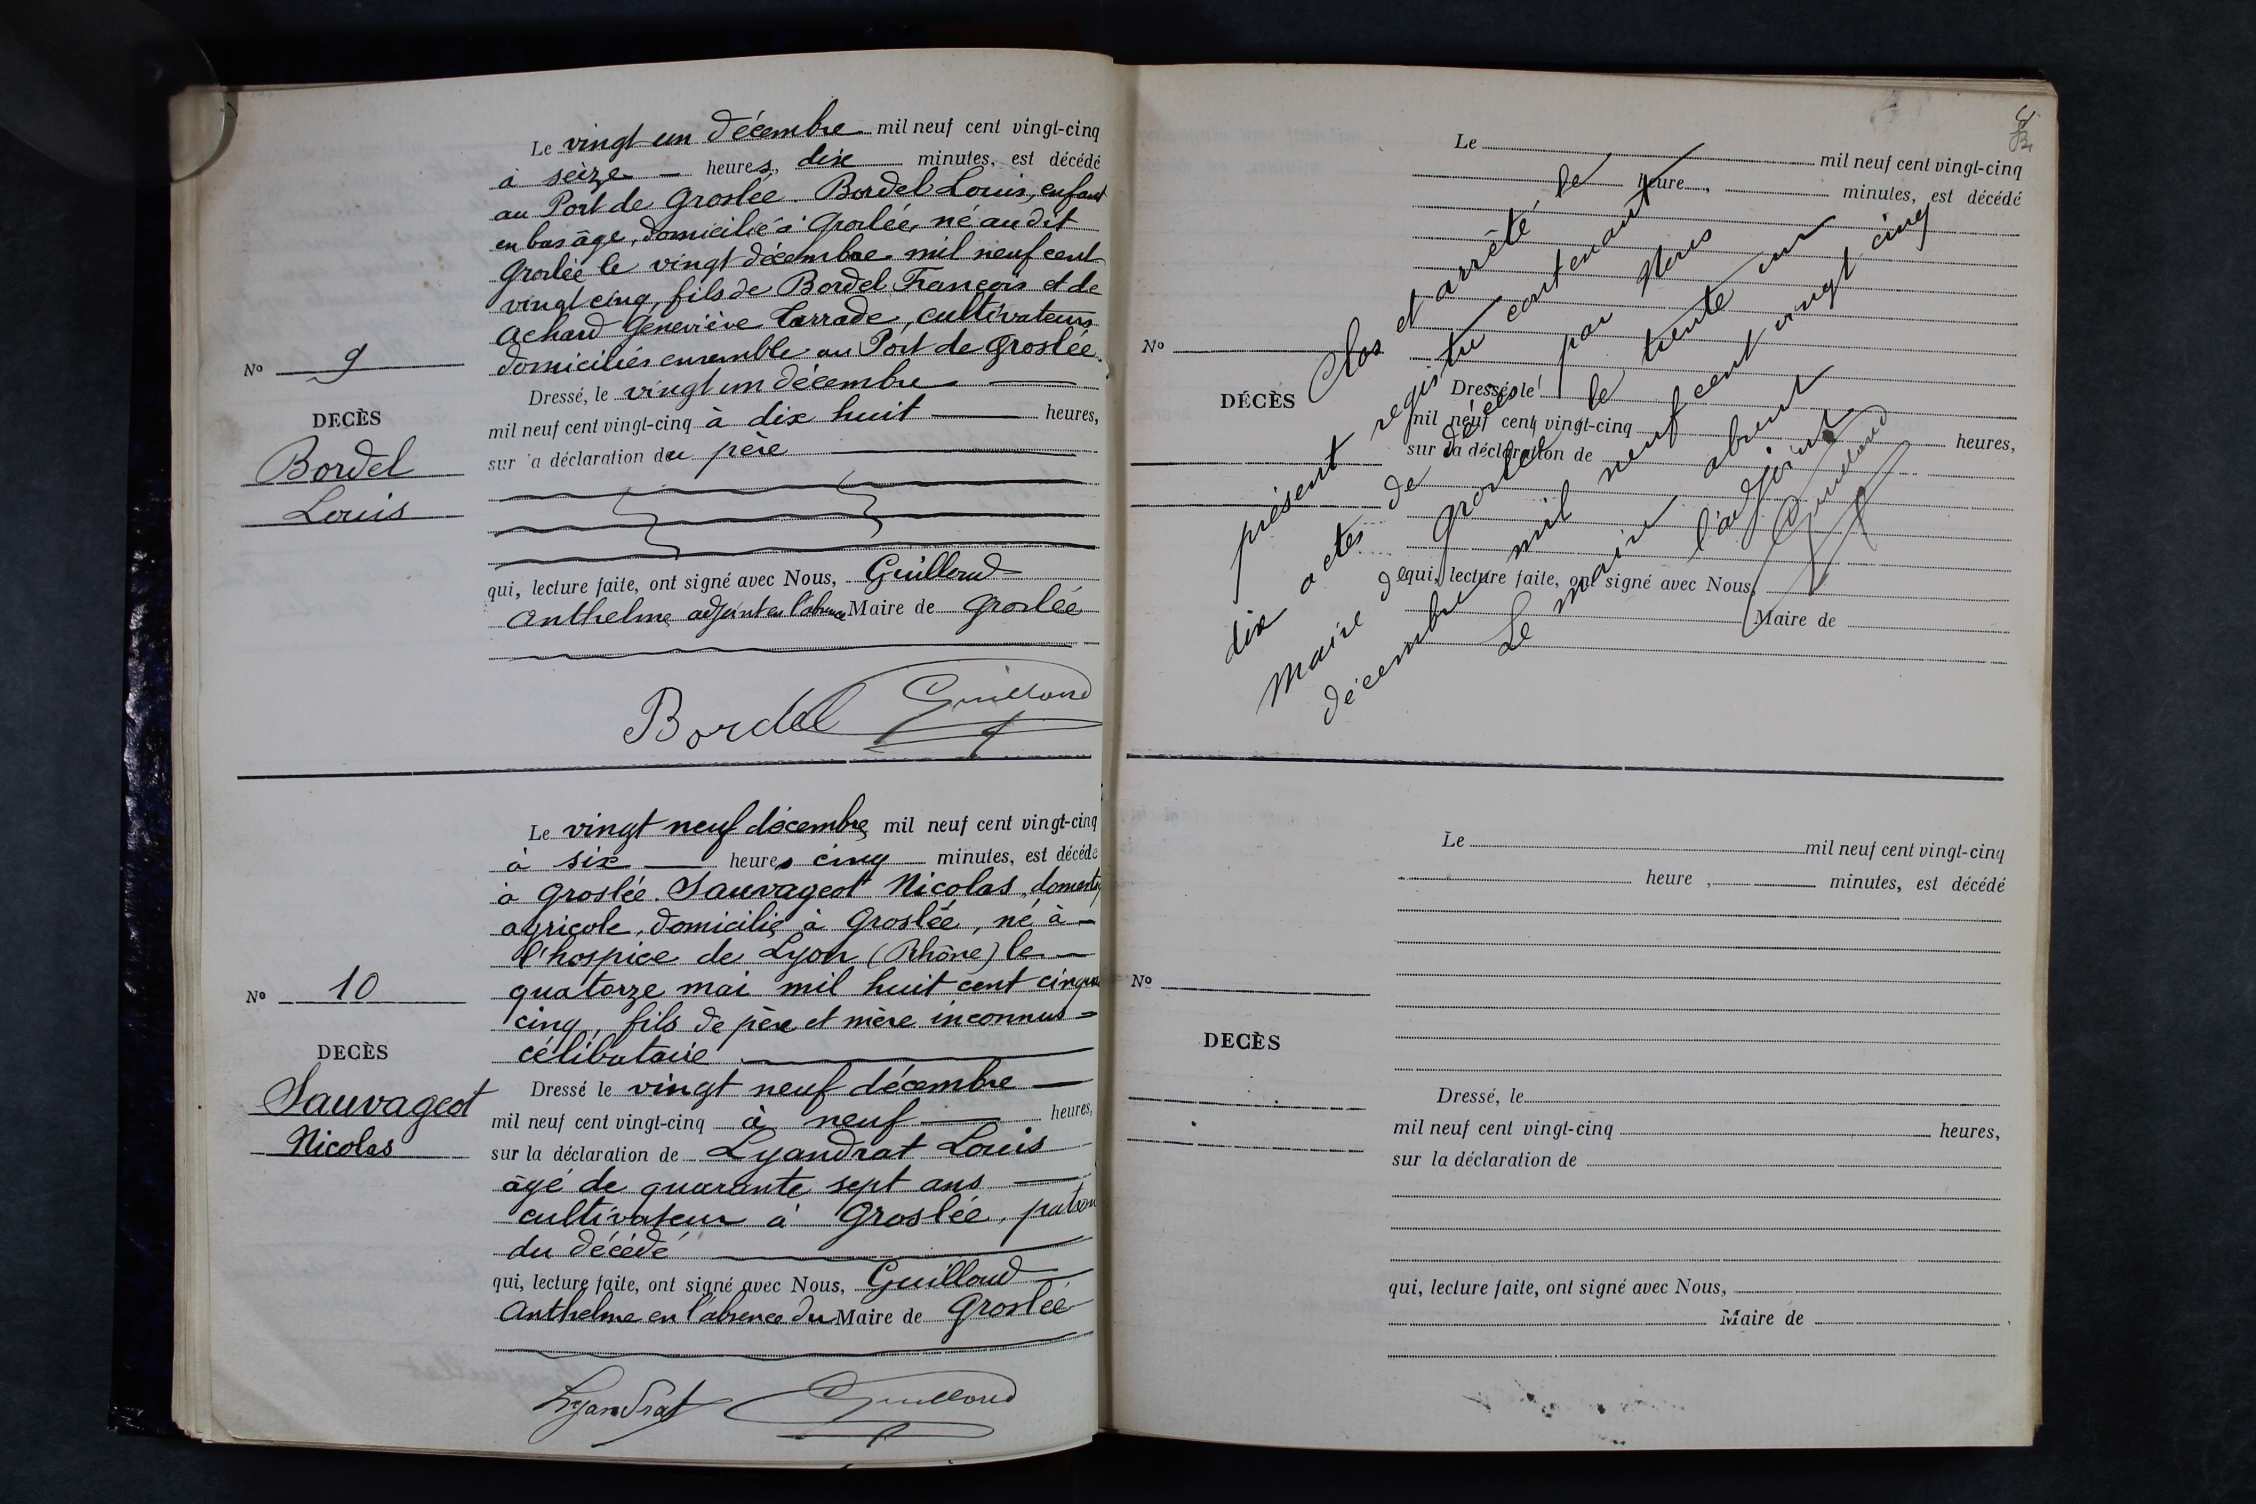 Le vingt un décembre mil neuf cent vingt-cinq
à seize heures, dix minutes, est décédé
au Port de Groslée. Bordel Louis, enfant
en bas âge, domicilié à Groslée, né au dit
Groslée le vingt décembre mil neuf cent
vingt cinq, fils de Bordel François et de
Achard Geneviève Larrade, cultivateurs
domiciliés ensemble au Port de Groslée.
No 9
DECÈS
Bordel
Louis
Dressé, le vingt un décembre
mil neuf cent vingt-cinq à dix huit heures,
sur la déclaration du père
qui, lecture faite, ont signé avec Nous, Guilloud
Anthelme adjoint en l'absence Maire de Groslée
Bordel Guilloud
Le vingt neuf décembre mil neuf cent vingt-cinq
à six heures cinq minutes, est décédé
à Groslée. Sauvageot Nicolas, domestiq
agricole, domicilié à Groslée, né à
l'hospice de Lyon (Rhône) le
quatorze mai mil huit cent cinquan
cinq, fils de père et mère inconnus =
célibataire
No 10
DECÈS
Sauvageot
Nicolas
Dressé le vingt neuf décembre
mil neuf cent vingt-cinq à neuf heures,
sur la déclaration de Lyandrat Louis
âgé de quarante sept ans
cultivateur à Groslée, patron
du décédé
qui, lecture faite, ont signé avec Nous, Guilloud
Anthelme en l'absence du Maire de Groslée
Lyandrat Guilloud
Le mil neuf cent vingt-cinq
heure , minutes, est décédé
No
DÉCÈS
Dressé, le
mil neuf cent vingt-cinq heures,
sur la déclaration de
qui, lecture faite, ont signé avec Nous,
Maire de
Clos et arrêté le
présent registre contenant
dix actes de décès par Nous
Maire de Groslée le trente un
décembre mil neuf cent vingt cinq
Le maire absent
l'adjoint
Guilloud
Le mil neuf cent vingt-cinq
heure , minutes, est décédé
No
DECÈS
Dressé, le
mil neuf cent vingt-cinq heures,
sur la déclaration de
qui, lecture faite, ont signé avec Nous,
Maire de